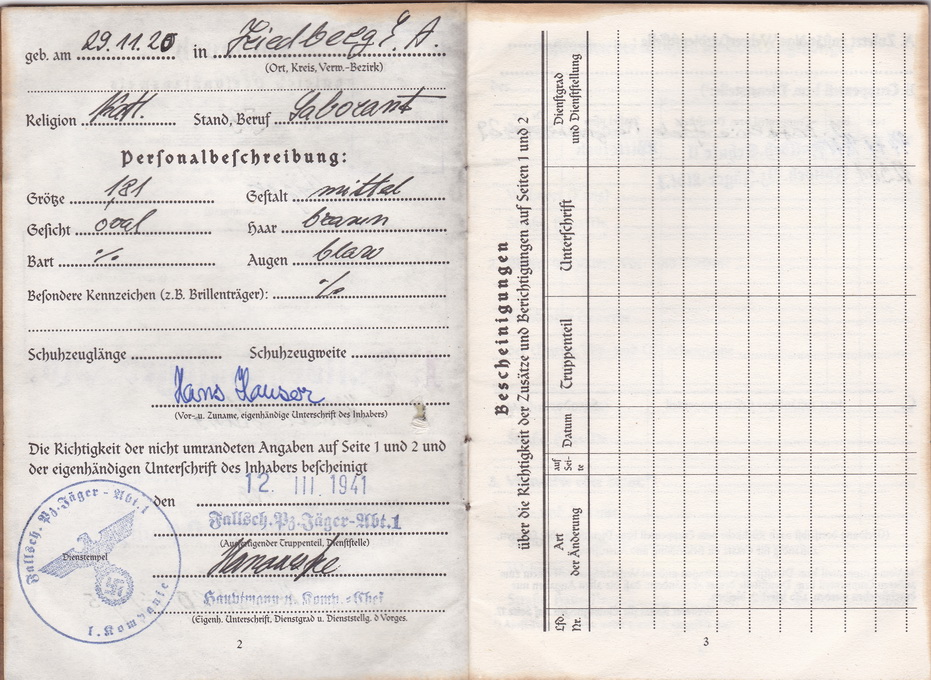 geb. am 29.11.20 in Friedberg
(Ort, Kreis, Verw.-Bezirk)
Religion Kath. Stand, Beruf Laborant
Personalbeschreibung:
Größe 181 Gestalt mittel
Gesicht oval Haar braun
Bart ./. Augen blau
Besondere Kennzeichen (z.B. Brillenträger): ./.
Schuhzeuglänge Schuhzeugweite
Hans Hauser
(Vor- u. Zuname, eigenhändige Unterschrift des Inhabers)
Die Richtigkeit der nicht umrandeten Angaben auf Seite 1 und 2 und
der eigenhändigen Unterschrift des Inhabers bescheinigt
den 12. III. 1941
Fallsch.Pz.Jäger-Abt.1
(Ausfertigender Truppenteil, Dienststelle)
Hauptmann u. Komp.-Chef
(Eigenh. Unterschrift, Dienstgrad u. Dienststellg. d Vorges.
Fallsch. Pz.Jäger-Abt.1
Dienstempel
1. Kompanie
2
Bescheinigungen
über die Richtigkeit der Zusätze und Berichtigungen auf Seiten 1 und 2
Lfd. Nr.
Art der Änderung
auf Sei-te
Datum
Truppenteil
Unterschrift
Dienstgrad und Dienststellung
3